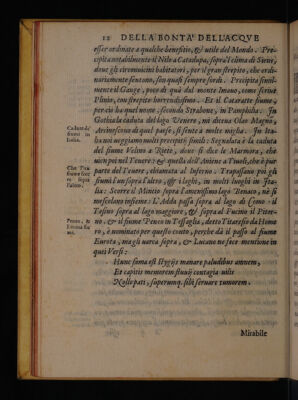 12 DELLA BONTA' DELL'ACQVE
esser ordinate a qualche benefitio, & utile del Mondo. Pre-
cipita notabilmente il Nilo a Catadupa, sopra'l clima di Siene,
doue gli circonuicini habitatori, per il gran strepito, che ordi-
nariamente sentono, son quasi sempre sordi. Precipita simil-
mente il Gange, poco di quà dal monte Imauo, come scriue
Plinio, con strepito horrendissimo. Et il Cataratte fiume,
per ciò ha quel nome, secondo Strabone, in Pamphilia. In
Gothia la caduta del lago Venere, ne dicena Olao Magno,
Arciuescouo di quel paese, si sente a molte miglia. In Ita-
lia noi ueggiamo molti precipitÿ simili: Segnalata è la caduta
del fiume Velino a Riete, doue si dice le Marmora, che
uien poi nel Teuere: & quella dell'Aniene a Tiuoli, che è pur
parte del Teuere, chiamata al Inferno. Trapassano poi gli
fiumi l'un sopra l'altro, & i laghi, in molti luoghi in Ita-
lia: Scorre il Mincio sopra l'amenissimo lago Benaco, nè si
mescolano insieme: L'Adda passa sopra al lago di Como: il
Tesino sopra al lago maggiore, & sopra al Fucino il Piter-
no, & il fiume Peneo in Tessaglia, detto Titaresio da Home
ro, è nominato per questo conto, perche dà il passo al fiume
Eurota, ma gli uarca sopra, & Lucano ne fece mentione in
quei Versi:
Hunc fama est Stygijs manare paludibus amnem,
Et capitis memorem fluuij contagia uilis
Nolle pati, superumq. sibi seruare timorem.
Cadute di
fiumi in
Italia.
Che
fiume scor
re sopra
l'altro.
Peneo, &
Eurota fiu
mi.
Mirabile